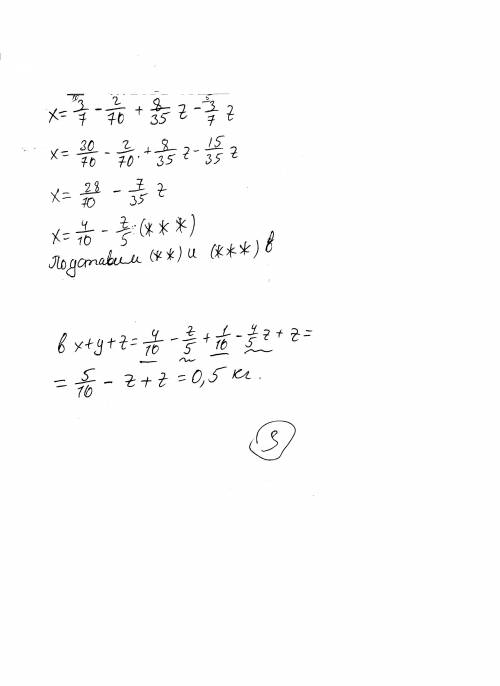 x = 3/7 - 2/70 + 8/35 z - 3/7 z
x = 30/70 - 2/70 + 8/35 z - 15/35 z
x = 28/70 - 7/35 z
x = 4/10 - z/5 (***)
Подставим (**) и (***) в
в x+y+z = 4/10 - z/5 + 1/10 - 4/5 z + z =
= 5/10 - z + z = 0,5 кг.